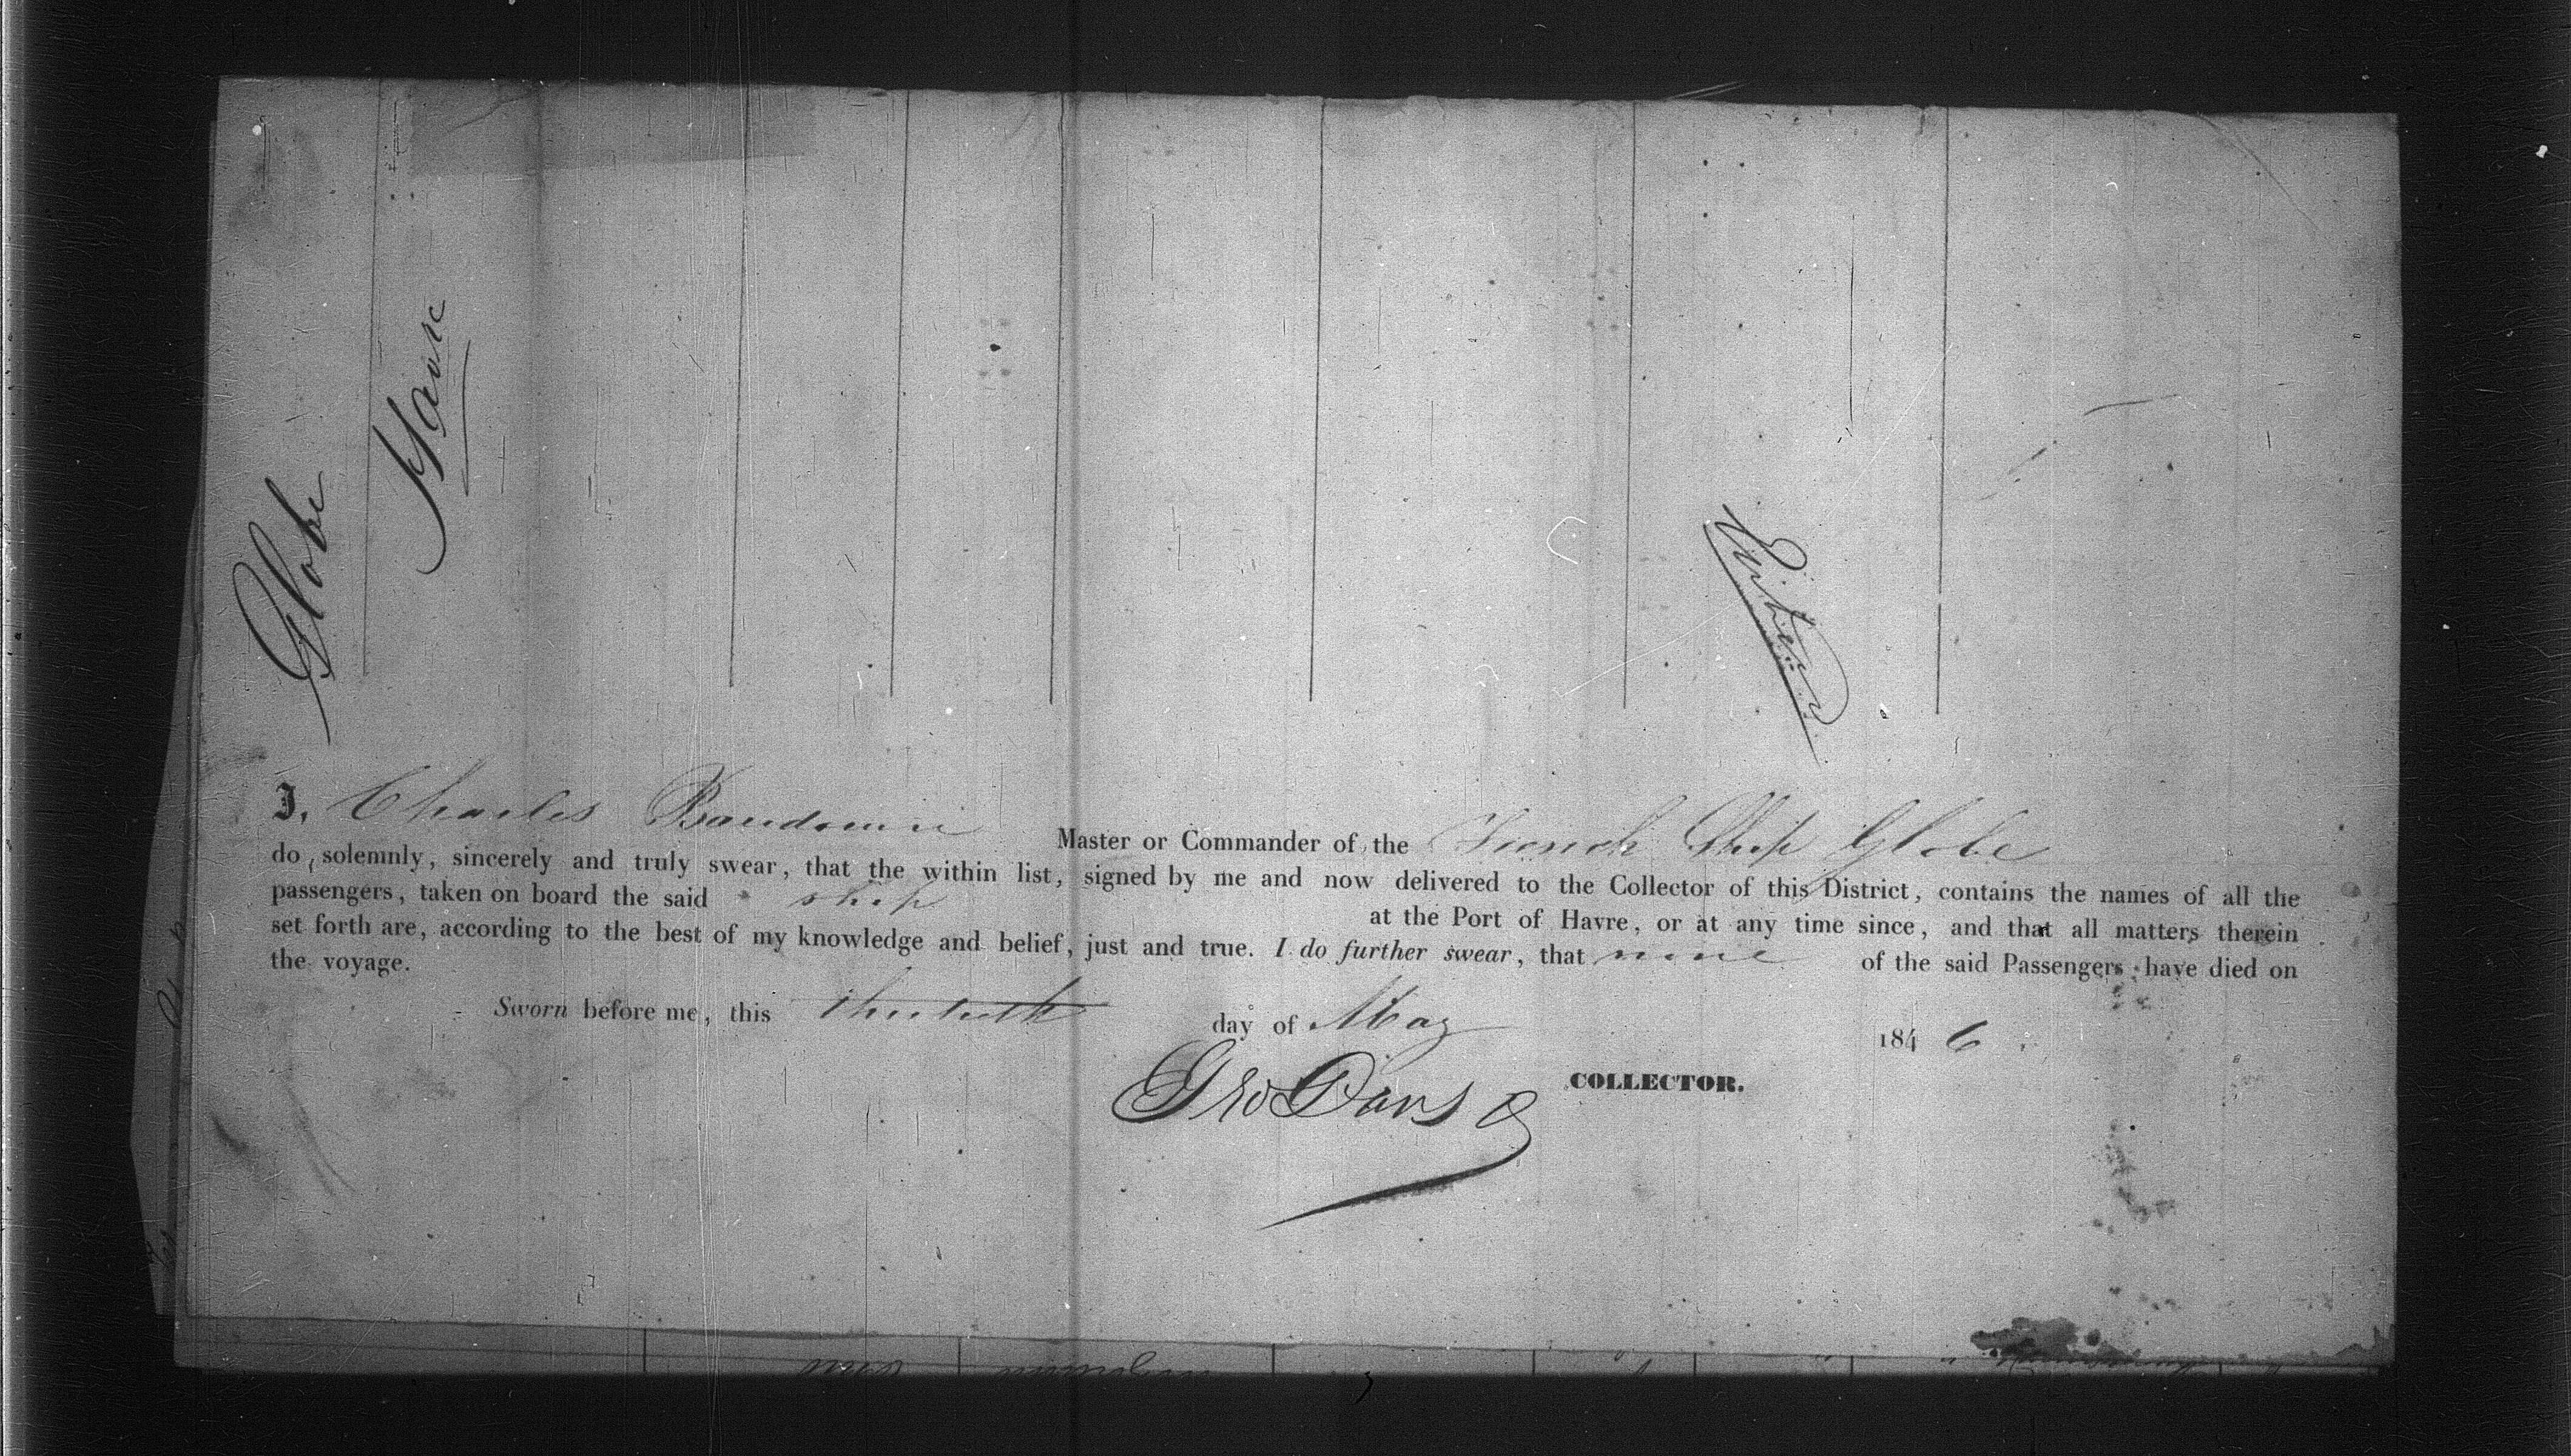 Globe
Havre
I, Charles Baudouin Master or Commander of the French Ship Globe
do, solemnly, sincerely and truly swear, that the within list, signed by me and now delivered to the Collector of this District, contains the names of all the
passengers, taken on board the said ship at the Port of Havre, or at any time since, and that all matters therein
set forth are, according to the best of my knowledge and belief, just and true. I do further swear, that none of the said Passengers have died on
the voyage.
Sworn before me, this thirtieth day of May 1846.
Geo Davis COLLECTOR.